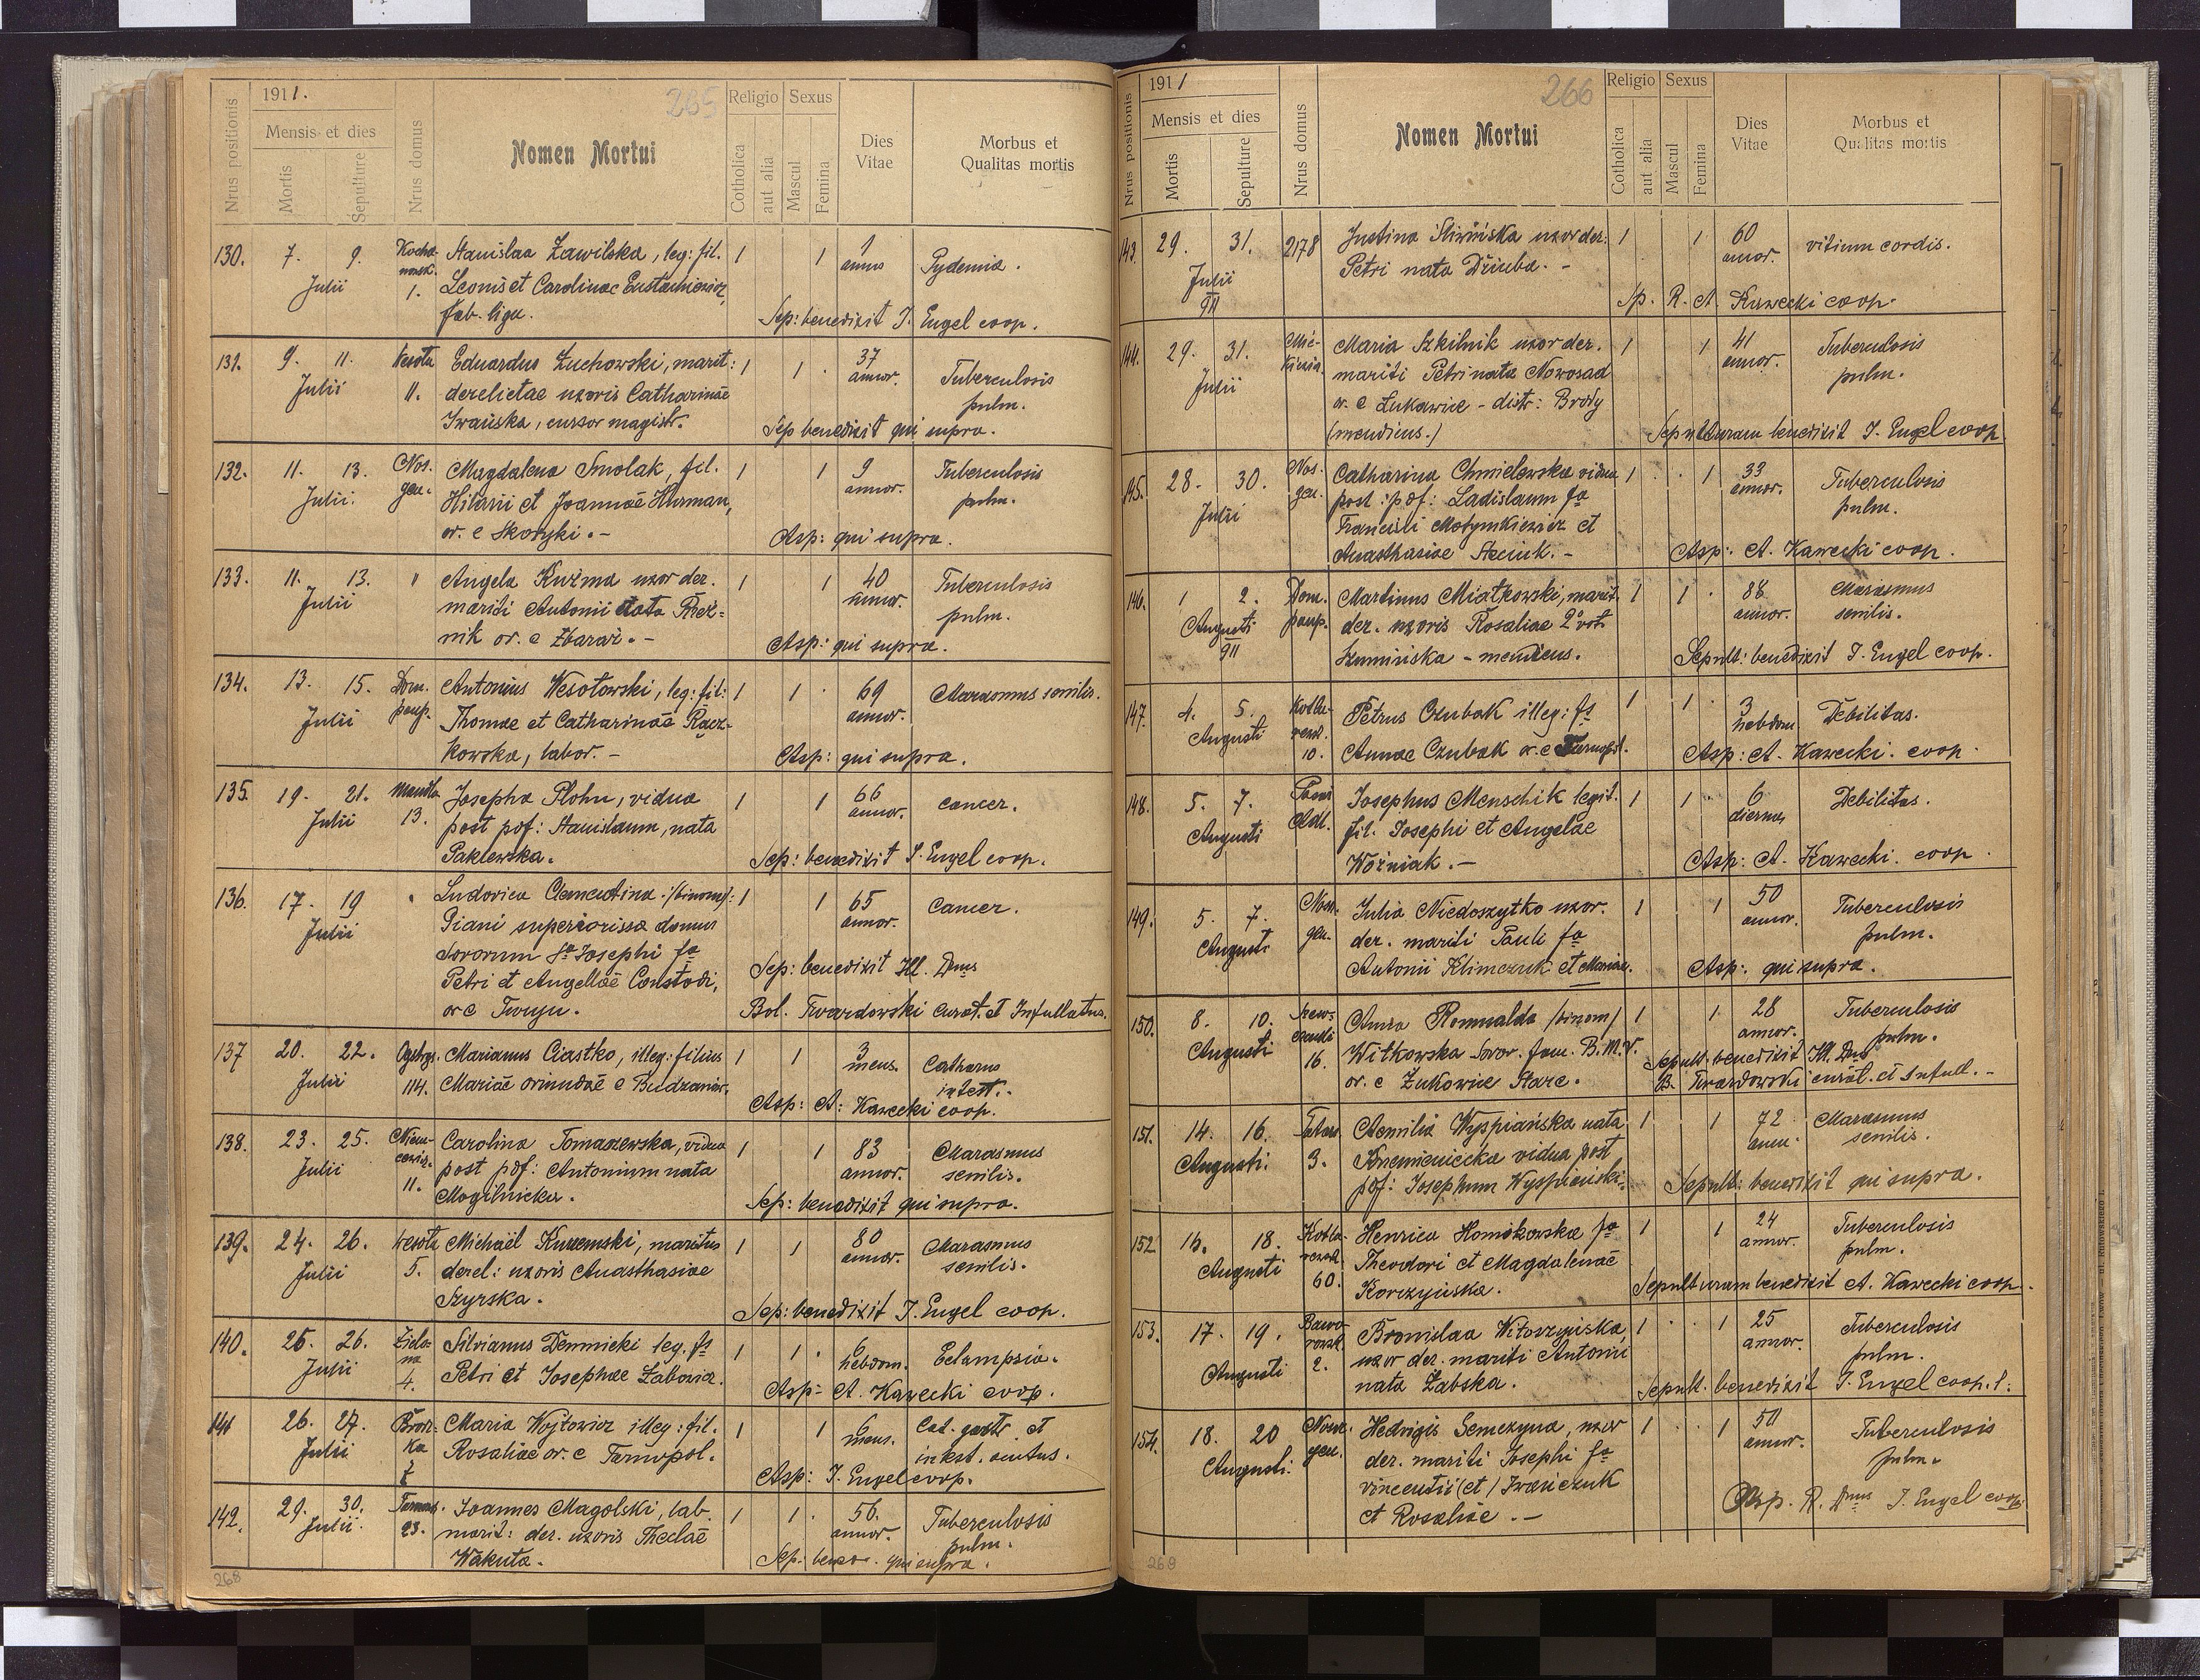 1911.
285
Nrus positionis
Mensis et dies
Mortis
Sepulture
Nrus domus
Nomen Mortui
Religio
Cotholica
aut alia
Sexus
Mascul
Femina
Dies Vitae
Morbus et
Qualitas mortis
130. 7. 9. Julii 1.
Stanislaa Zawilska, leg: fil. 1 1 1 annus Pydemia.
Leonis et Carolinae Eustachiewicz
fab. lign. Sep: benedixit J. Engel coop.
131. 9. 11. Julii Wesoła 11.
Eduardus Żuchowski, marit: 1 1 37 annor. Tuberculosis pulm.
derelictae uxoris Catharinae
Iwańska, cursor magistr. Sep benedixit qui supra.
132. 11. 13. Julii Nos. gen.
Magdalena Smolak, fil. 1 1 9 annor. Tuberculosis pulm.
Hilarii et Joannae Hurman,
or. e Skoryki. - Asp: qui supra.
133. 11. 13. Julii "
Angela Kuźma uxor der. 1 1 40 annor. Tuberculosis pulm.
mariti Antonii nata
nik or. e Zbaraż. - Asp: qui supra.
134. 13. 15. Julii Dom. paup.
Antonius Wesołowski, leg: fil: 1 1 69 annor. Marasmus senilis.
Thomae et Catharinae Rącz-
kowska, labor. - Asp: qui supra.
135. 19. 21. Julii 13.
Josepha Plohn, vidua 1 1 66 annor. cancer.
post pof: Stanislaum, nata
Paklewska. Sep: benedixit J. Engel coop.
136. 17. 19 Julii "
Ludovica Clementina /binom/: 1 1 65 annor. Cancer.
Piani superiorissa domus
sororum St Josephi fa Sep: benedixit Ill. Dnus
Petri et Angellae Custodi,
or e Bol. Twardowski curat. et Infullatus.
137 20. 22. Julii 114.
Marianus Ciastko, illeg: filius 1 1 3 mens. Catharus intest.
Mariae oriundae e Budzanów. Asp: A: Kawecki coop.
138. 23. 25. Julii 11.
Carolina Tomaszewska, vidua 1 1 83 annor. Marasmus senilis.
post pof: Antonium nata
Mogilnicka. Sep: benedixit qui supra.
139. 24. 26. Julii Wesoła 5.
Michael Kurzemski, maritus 1 1 80 annor. Marasmus senilis.
derel: uxoris Anasthasiae
Szyrska. Sep: benedixit J. Engel coop.
140. 25. 26. Julii 4.
Silvianus Demnicki leg. fs 1 1 6 hebdom. Eclampsia.
Petri et Josephae Łabowicz. Asp: A. Kawecki coop.
141 26. 27. Julii
Maria Wojtowicz illeg: fil. 1 1 6 mens. Cat. gastr. et
Rosaliae or. e Tarnopol. intest. acutus.
Asp: J. Engel coop.
142. 29. 30. Julii 23.
Joannes Magolski, lab. 1 1 56. annor. Tuberculosis pulm.
marit: der. uxoris Theclae
Wakuta. Sep: bened. qui supra.
268
1911
266
Nrus positionis
Mensis et dies
Mortis
Sepulture
Nrus domus
Nomen Mortui
Religio
Cotholica
aut alia
Sexus
Mascul
Femina
Dies Vitae
Morbus et
Qualitas mortis
143. 29. 31. Julii 911 2178
Justina Śliwińska uxor der: 1 1 60 annor. vitium cordis.
Petri nata Dziuba. -
Sp. R. A. Kawecki coop.
144. 29. 31. Julii
Maria Szkilnik uxor der. 1 1 41 annor. Tuberculosis pulm.
mariti Petri nata Nowosad
or. e Łukawice - distr: Brody
(mendicus.) Sepulturam benedixit J. Engel coop
145. 28. 30. Julii Nos. gen.
Catharina Chmielewska vidua 1 1 33 annor. Tuberculosis pulm.
post: pof: Ladislaum fa
Francisci Motymkiewicz et
Anasthasiae Steciuk. - Asp: A. Kawecki coop.
146. 1 2. Augusti 911 Dom. paup.
Martinus Miatkowski, marit. 1 1 88 annor. Marasmus senilis.
der. uxoris Rosaliae 2º vot.
Szumińska - mendicus. Sepult: benedixit J. Engel coop.
147. 4. 5. Augusti 10.
Petrus Czubak illeg: fs 1 1 3 hebdom Debilitas.
Annae Czubak or. e Tarnopol. Asp: A. Kawecki. coop.
148. 5. 7. Augusti
Josephus Menschik legit. 1 1 6 dierum Debilitas.
fil. Josephi et Angelae
Woźniak. - Asp: A. Kawecki. coop.
149. 5. 7. Augusti Nos. gen.
Julia Niedoszytko uxor. 1 1 50 annor. Tuberculosis pulm.
der. mariti Pauli fa
Antonii Klimczuk et Mariae. Asp: qui supra.
150. 8. 10. Augusti 16.
Anna Romualda /binom/ 1 1 28 annor. Tuberculosis pulm.
Witkowska Soror. fam. B.M.V. Sepult: benedixit Ill. Dnus
or. e Żukowice Stare. B. Twardowski curat. et Infull. -
151. 14. 16. Augusti. 3.
Aemilia Wyspiańska nata 1 1 72 ann. Marasmus senilis.
Krzemieniecka vidua post
pof: Josephum Wyspiański. Sepult: benedixit qui supra.
152 16. 18. Augusti 60.
Henrica Homikowska fa 1 1 24 annor. Tuberculosis pulm.
Theodori et Magdalenae
Korczyńska. Sepulturam benedixit A. Kawecki coop.
153. 17. 19. Augusti 2.
Bronislaa Witoszyńska, 1 1 25 annor. Tuberculosis pulm.
uxor der. mariti Antonii
nata Żabska. Sepult. benedixit J. Engel coop.
154. 18. 20 Augusti. gen.
Hedvigis Semczyna, uxor 1 1 50 annor. Tuberculosis pulm.
der. mariti Josephi fa
Vincentii (et) Iwańczuk
et Rosaliae. - Asp. R. Dnus J. Engel coop.
269